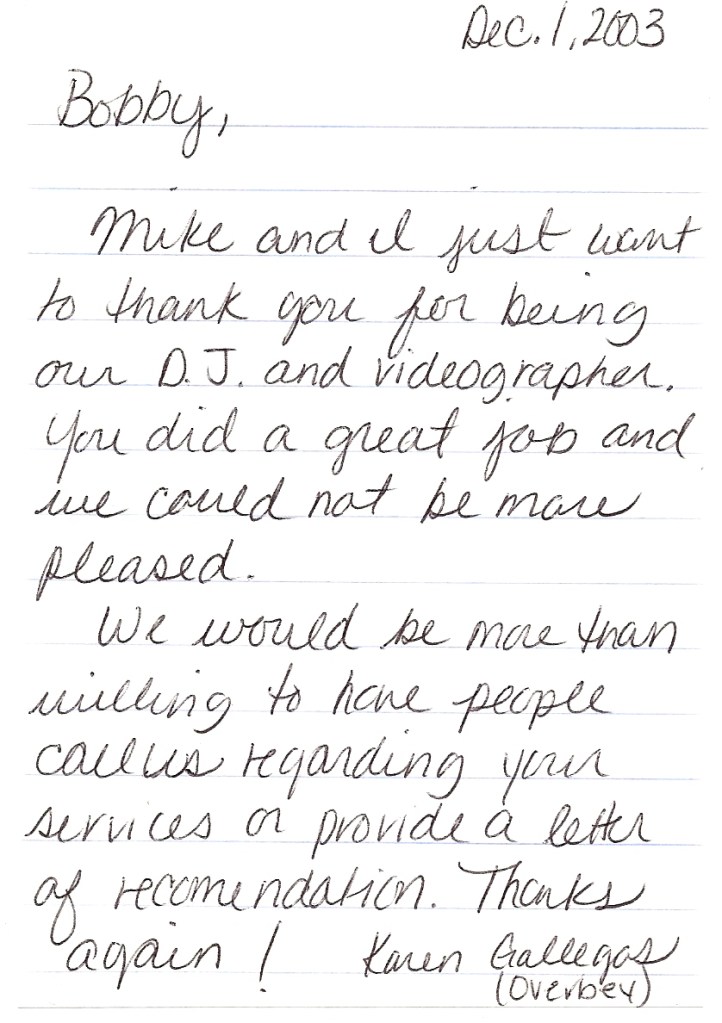 Dec. 1, 2003
Bobby,
Mike and I just want
to thank you for being
our D.J. and videographer.
You did a great job and
we could not be more
pleased.
We would be more than
willing to have people
call us regarding your
services or provide a letter
of recomendation. Thanks
again! Karen Gallegos
(Overbey)